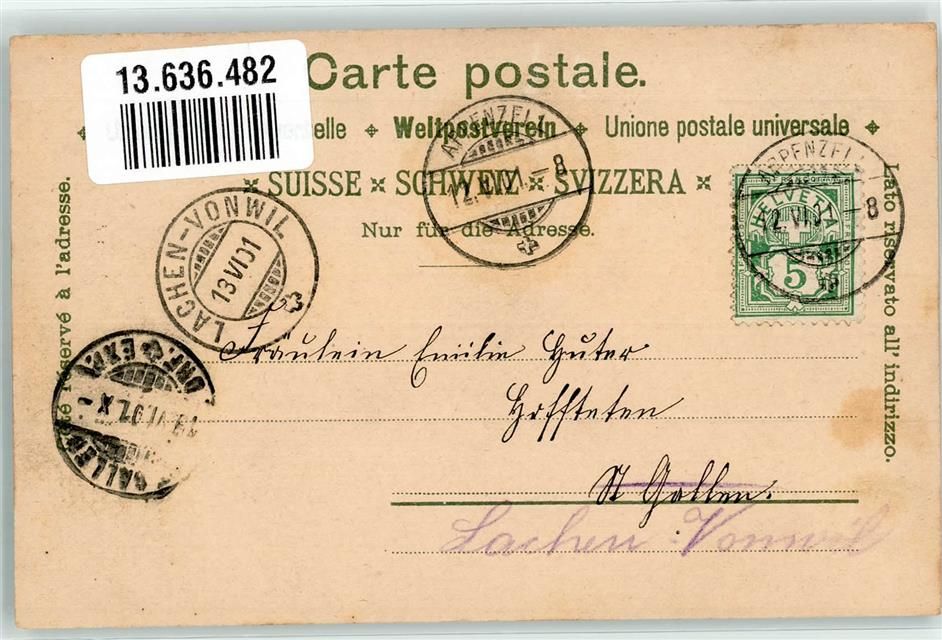 13.636.482
Carte postale.
elle ✦ Weltpostverein ✦ Unione postale universale ✦
× SUISSE × SCHWEIZ × SVIZZERA ×
Nur für die Adresse.
APPENZELL
12.VI.01.-8
APPENZELL
12.VI.01.-8
HELVETIA
5
LACHEN-VONWIL
13 VI 01
GALLEN
VI.01.X-
EXP.
réservé à l'adresse.
Lato riservato all'indirizzo.
Fräulein Emilie Huter
Hoffteten
St Gallen.
Lachen-Vonwil